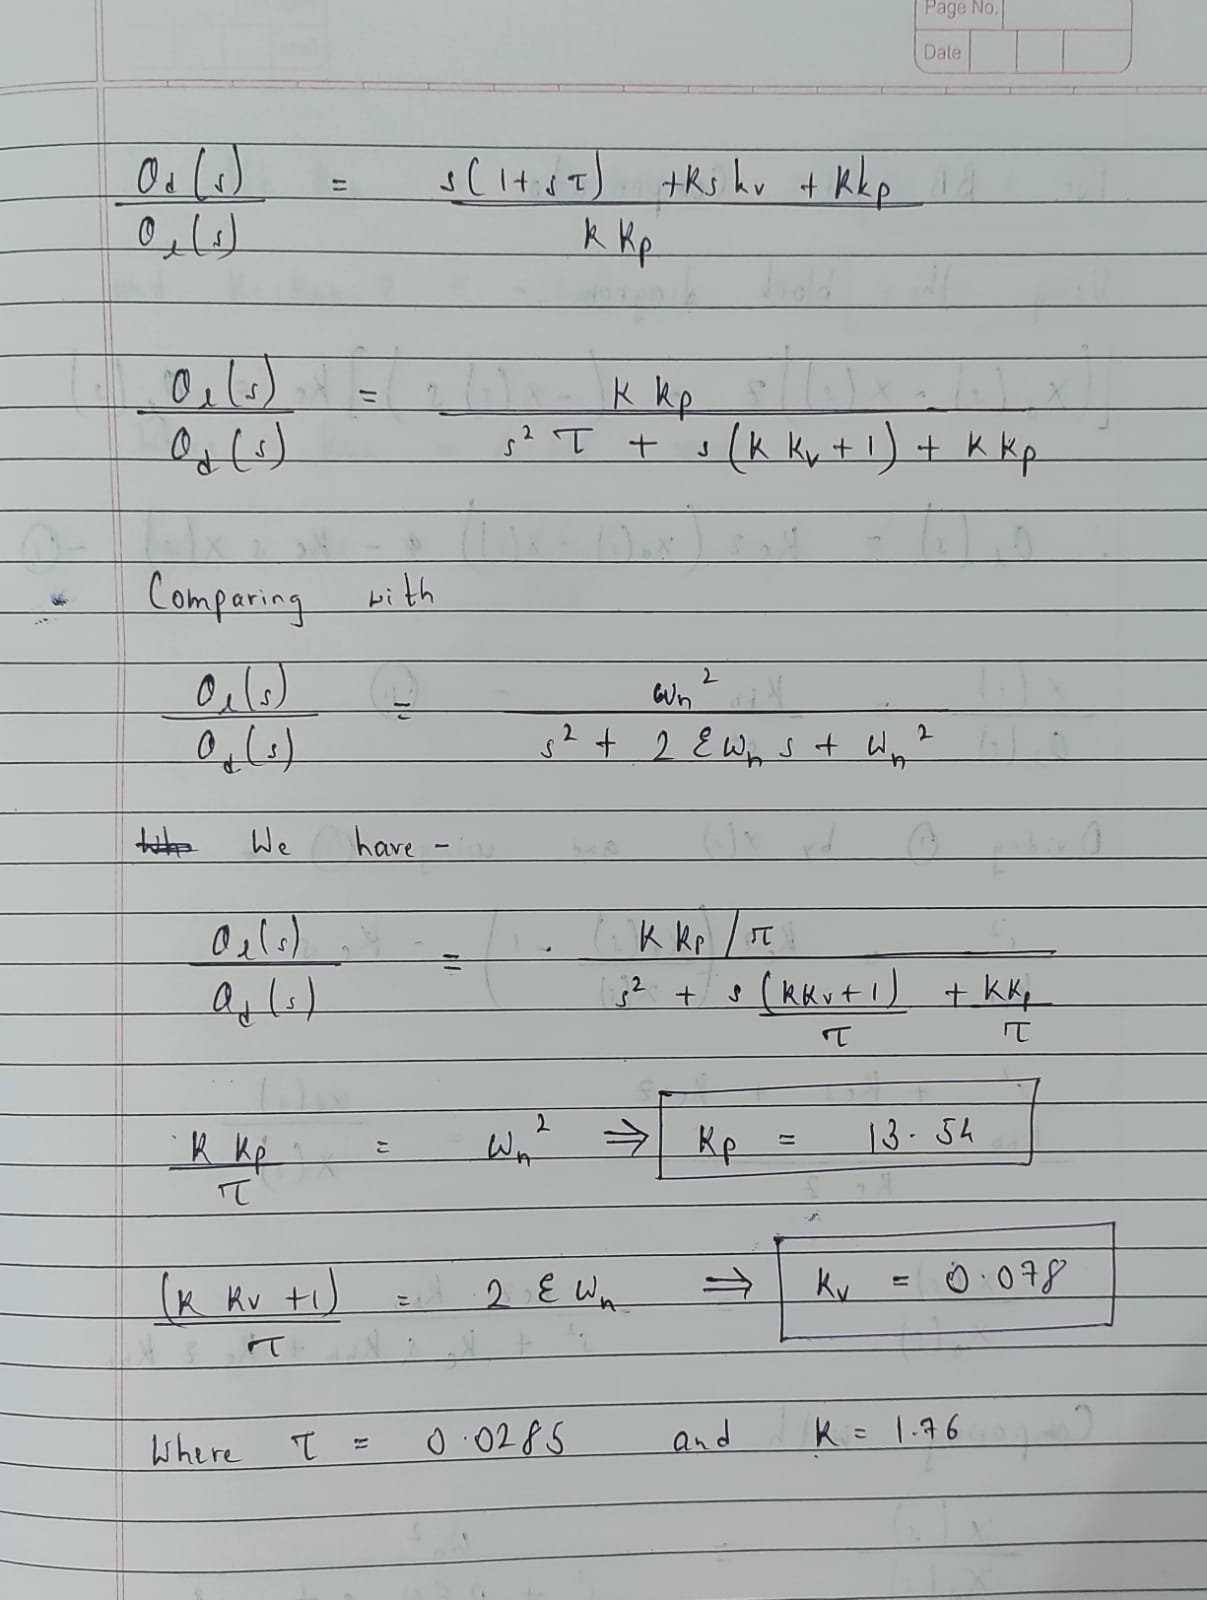 Page No.
Date
θd(s) / θl(s) = s(1+sτ) + Ks kv + Kkp / K Kp
θl(s) / θd(s) = K kp / s² τ + s(K Kv + 1) + K Kp
Comparing with
θl(s) / θd(s) = ωn² / s² + 2 ξ ωn s + ωn²
We have -
θl(s) / θd(s) = K Kp/τ / s² + s (KKv+1)/τ + KKp/τ
K Kp / τ = ωn² ⇒ Kp = 13.54
(K Kv + 1) / τ = 2 ξ ωn ⇒ Kv = 0.078
Where τ = 0.0285 and K = 1.76